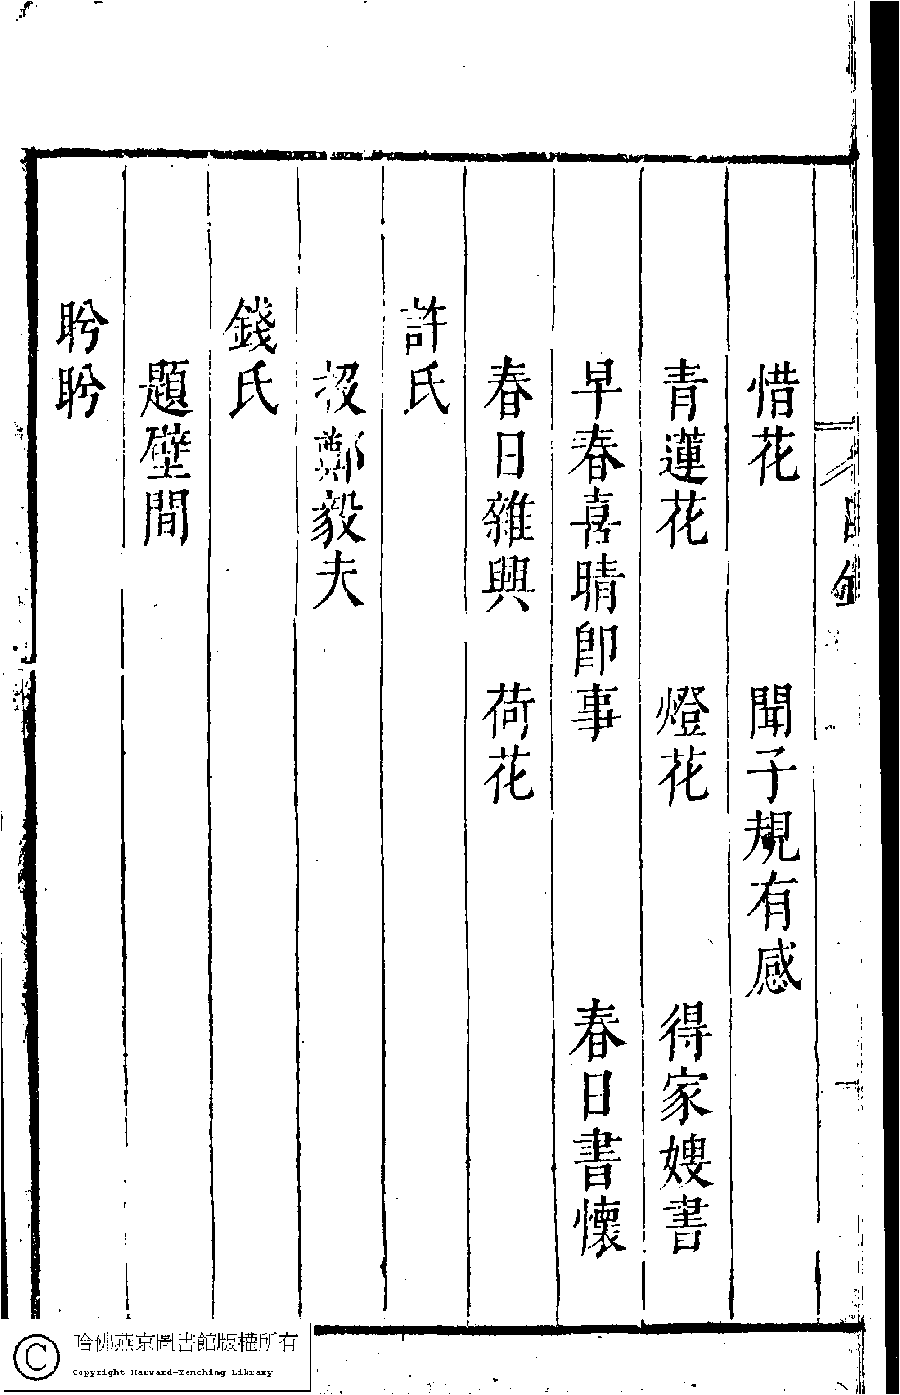 惜花　聞子規有感
青蓮花　燈花　得家嫂書
早春喜晴即事　春日書懷
春日雜興　荷花
許氏
投鄭毅夫
錢氏
題壁間
盻盻
哈佛燕京圖書館版權所有
Copyright Harvard-Yenching Library